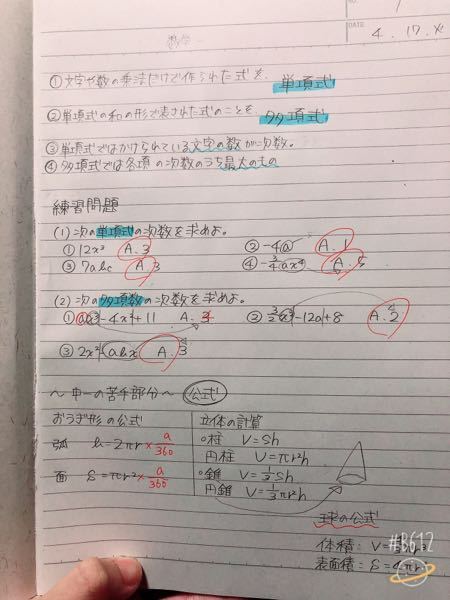 NO.
DATE
4.17.
数学
①文字や数の乗法だけで作られた式を、単項式
②単項式の和の形で表された式のことを 多項式
③単項式ではかけられている文字の数が次数。
④多項式では各項の次数のうち最大のもの
練習問題
(1)次の単項式の次数を求めよ。
①12x³ A.3 ②-4a A.1
③7abc A.3 ④-¾ax⁴ A.5
(2)次の多項数の次数を求めよ。
①ax³-4x²+11 A.4 ②3/2x²-12a+8 A.2
③2x²+abx A.3
~中一の苦手部分~ 公式
おうぎ形の公式 立体の計算
弧 l=2πr×a/360 ○柱 V=Sh
円柱 V=πr²h
面 S=πr²×a/360 ○錐 V=⅓Sh
円錐 V=⅓πr²h
球の公式
体積: V=
表面積: S=4πr
#B612